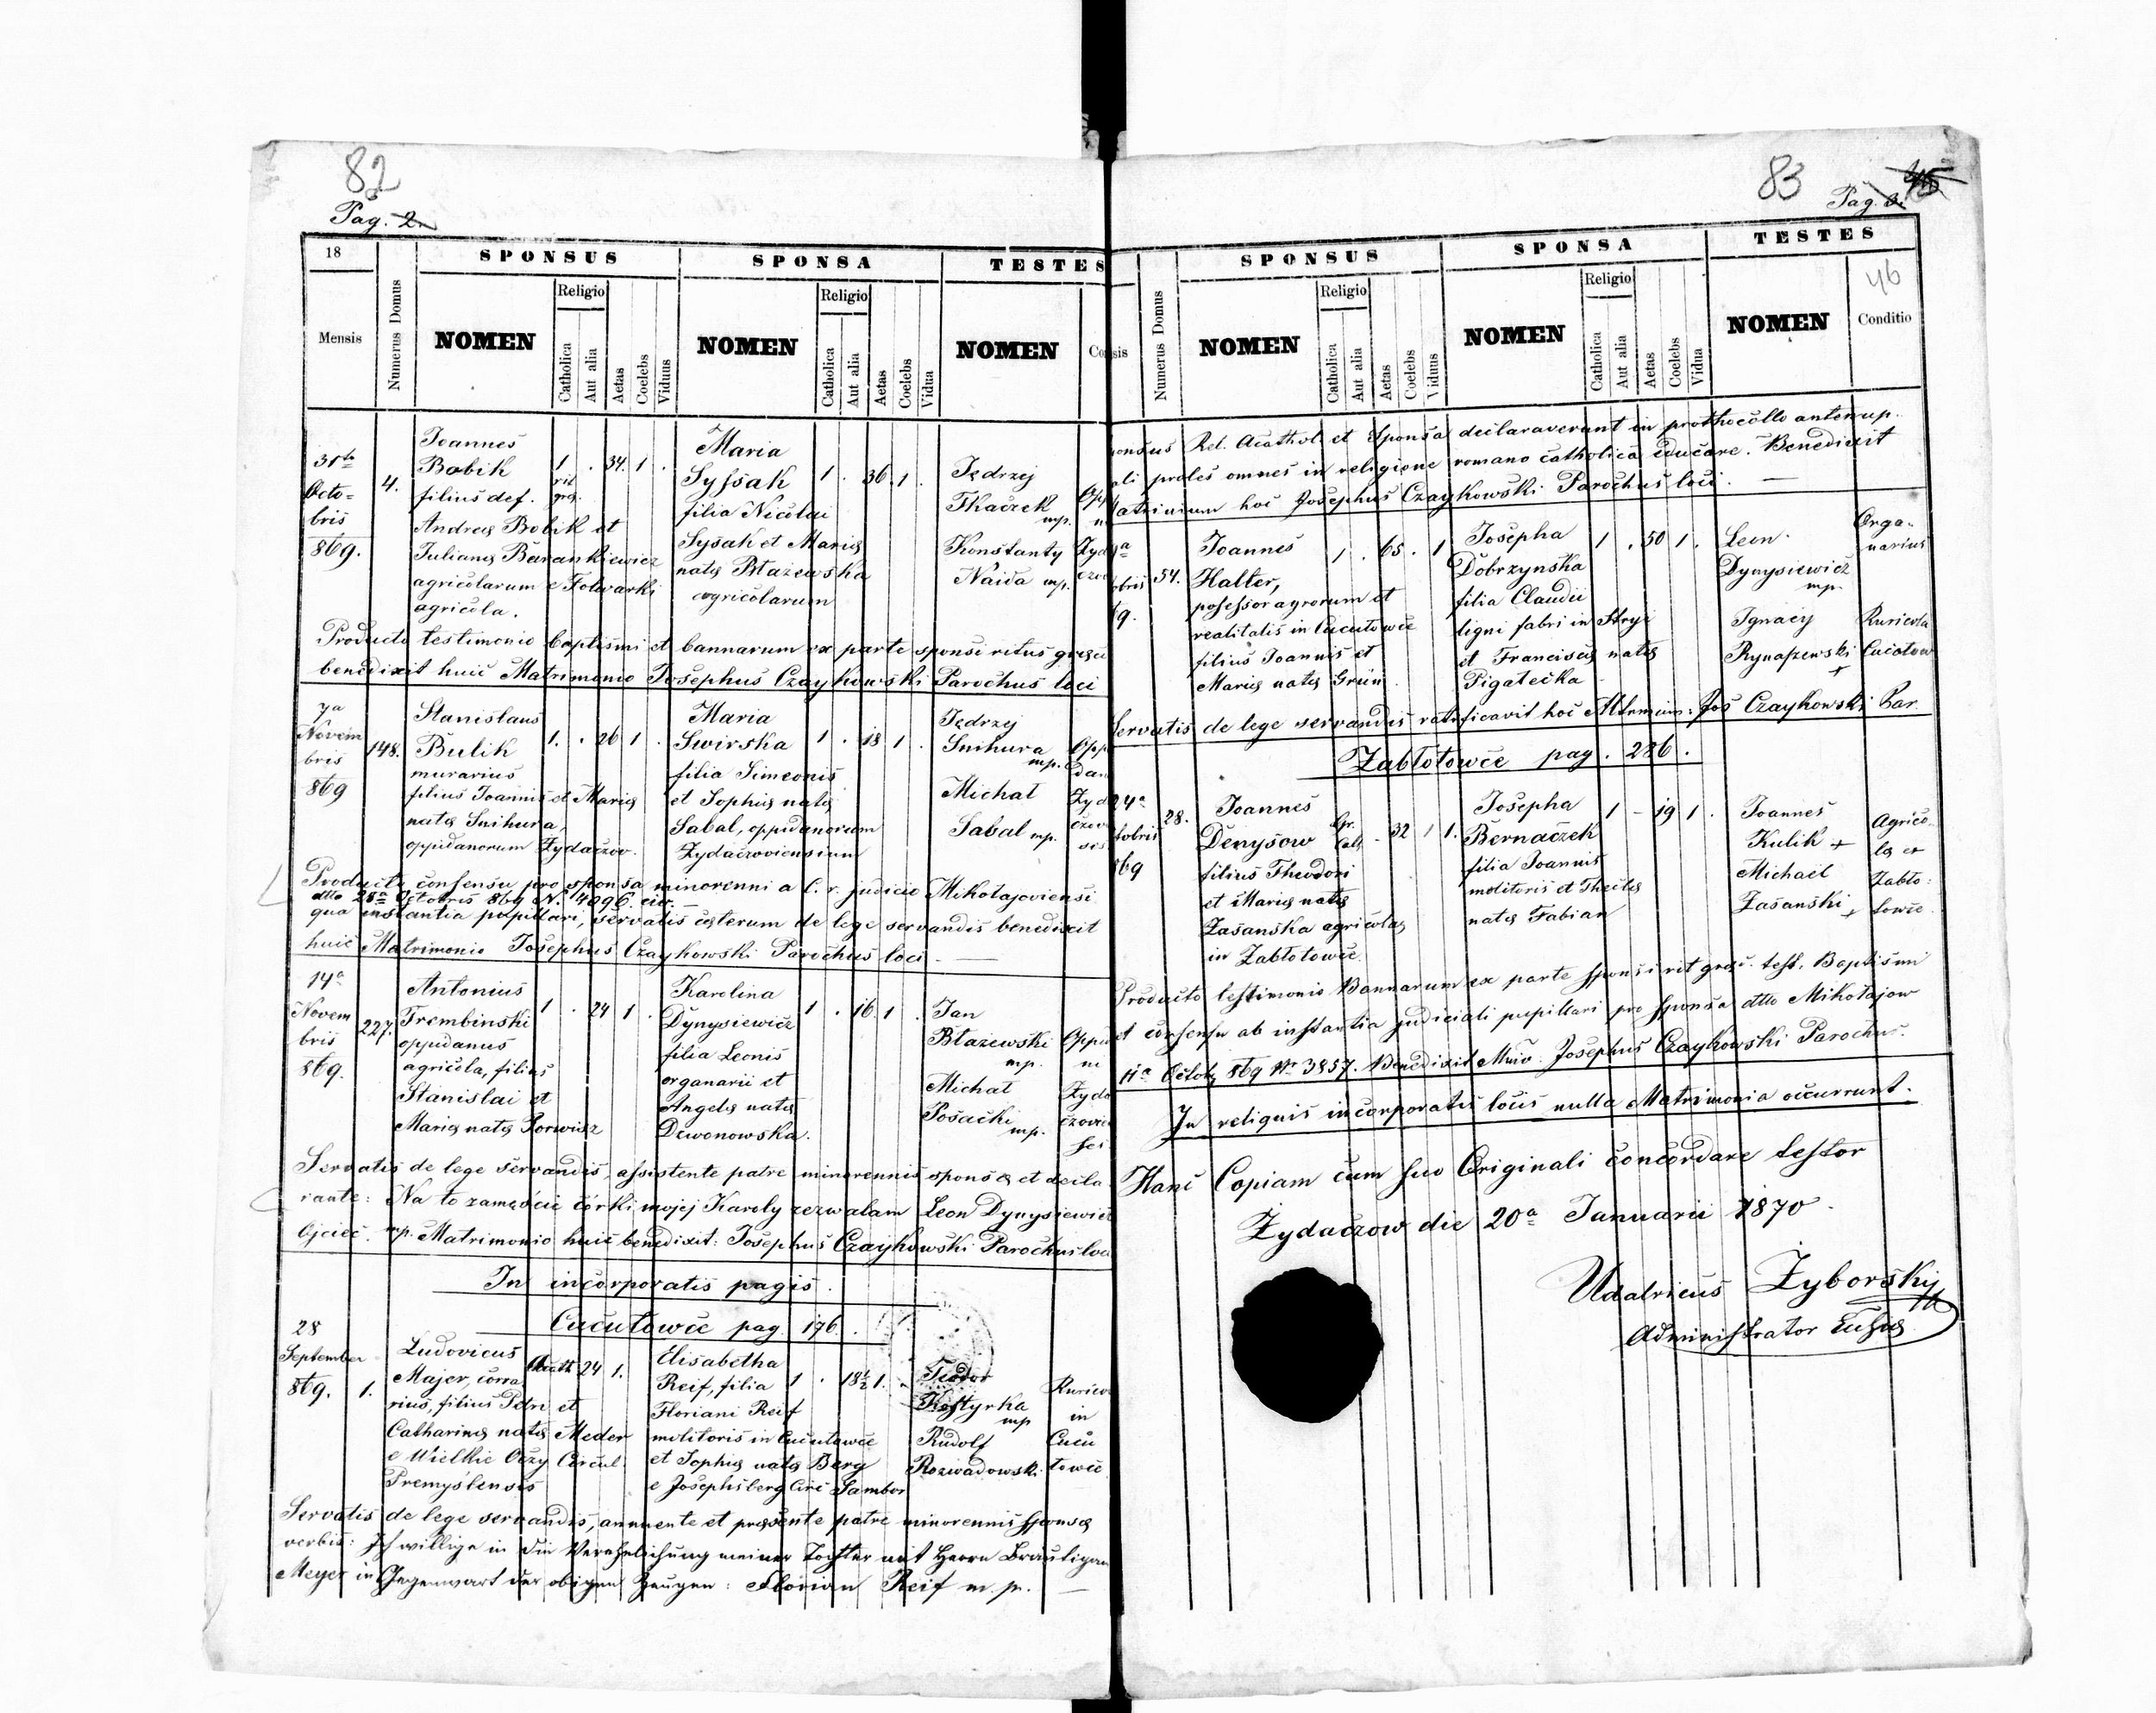 82
Pag. 2.
18
Mensis
Numerus Domus
SPONSUS
NOMEN
Religio
Catholica
Aut alia
Aetas
Coelebs
Viduus
SPONSA
NOMEN
Religio
Catholica
Aut alia
Aetas
Coelebs
Vidua
TESTES
NOMEN
31ta
Octo=
bris
869.
4.
Joannes
Bobik
filius def.
Andreę Bobik et
Julianę Barankiewicz
agricolarum e Folwarki
agricola.
1 . 34. 1 .
rit
gręc.
Maria
Syssak
filia Nicolai
Sysak et Marię
natę Błażewska
agricolarum
1 . 36 . 1 .
Jędrzej
Tkaczek
mp.
Konstanty
Naida mp.
Producto testimonio baptismi et bannarum ex parte sponsi ritus gręci
benedixit huic Matrimonio Josephus Czaykowski Parochus loci
7a
Novem
bris
869
148.
Stanislaus
Bulik
murarius
filius Joannis et Marię
natę Snihura,
oppidanorum Żydaczov.
1. . 26 1 .
Maria
Swirska
filia Simeonis
et Sophię natę
Sabal, oppidanorum
Żydaczoviensium
1 . 18 1 .
Jędrzej
Snihura
mp.
Michał
Sabal mp.
Producto consensu pro sponsa minorenni a C. r. judicio Mikołajoviensi
dtto 28a Octobris 869 N. 4096. civ.
qua instantia pupillari, servatis cęterum de lege servandis benedixit
huic Matrimonio Josephus Czaykowski Parochus loci. —
14a
Novem
bris
869.
227.
Antonius
Trembinski
oppidanus
agricola, filius
Stanislai et
Marię natę Porwisz
1 . 24 1 .
Karolina
Dynysiewicz
filia Leonis
organarii et
Angelę natę
Dewonowska.
1 . 16. 1 .
Jan
Błażewski
mp.
Michał
Posacki
mp.
Servatis de lege servandis, assistente patre minorennis sponsę et decla
rante: Na to zamęście córki mojej Karoly zezwalam Leon Dynysiewicz
Ojciec. mp. Matrimonio huic benedixit: Josephus Czaykowski Parochus loci
In incorporatis pagis.
Cucułowce pag. 176.
28
September
869.
1.
Ludovicus
Majer,
rius, filius Petri et
Catharinę natę Meder
e Wielkie Oczy Circul.
Premyslensis
Acath 24 1.
Elisabetha
Reif, filia
Floriani Reif
molitoris in Cucułowce
et Sophię natę Berg
e Josephsberg Circ Sambor
1 . 18½ 1.
Teodor
Kostyrka
mp
Rudolf
Rozwadowski
Ruricol
in
Cucu
łowce
Servatis de lege servandis, annuente et pręsente patre minorennis sponsę
verbis: Ich willige in die Verehelichung meiner Tochter mit Herrn Bräutigam
Meyer in Gegenwart der obigen Zeugen: Florian Reif m. p. —
83
Pag. 3.
46
Numerus Domus
SPONSUS
NOMEN
Religio
Catholica
Aut alia
Aetas
Coelebs
Viduus
SPONSA
NOMEN
Religio
Catholica
Aut alia
Aetas
Coelebs
Vidua
TESTES
NOMEN
Conditio
ponsus Rel. Acathol. et Sponsa declaraverunt in prothocollo antenup.
ali proles omnes in religione romano catholica educare. Benedixit
Matrimium hoc Josephus Czaykowski Parochus loci. —
54.
Joannes
Halter,
possessor agrorum et
realitatis in Cucułowce
filius Joannis et
Marię natę Grün
1 . 65. . 1
Josepha
Dobrzynska
filia Claudii
ligni fabri in Stryi
et Franciscę natę
Pigatecka
1 . 50 1 .
Leon
Dynysiewicz
mp.
Ignacy
Rynaszewski
+
Orga-
narius
Ruricola
Cucołow
Servatis de lege servandis ratificavit hoc Mtrmium: Jos Czaykowski Par.
Zabłotowce pag. 286.
24a
tobris
869
28.
Joannes
Denysow
filius Theodori
et Marię natę
Zasanska agricolas
in Zabłotowce.
Gr.
Cath - 32 1 1.
Josepha
Bernaczek
filia Joannis
molitoris et Theclę
natę Fabian
1 - 19 1 .
Joannes
Kulik +
Michael
Zasanski +
Agrico-
lę er
Zabło-
towce
Producto testimonio Bannarum ex parte sponsi rit gręc. test. Baptismi
et consensu ab instantia judiciali pupillari pro sponsa dtto Mikołajow
11a Octob. 869 Nr 3857. Benedixit Mnio. Josephus Czaykowski Parochus.
In reliquis incorporatis locis nulla Matrimonia occurrunt.
Hanc Copiam cum suo Originali concordare testor
Żydaczow die 20a Januarii 1870.
Udalricus Zyborskij
Administrator Ecclę